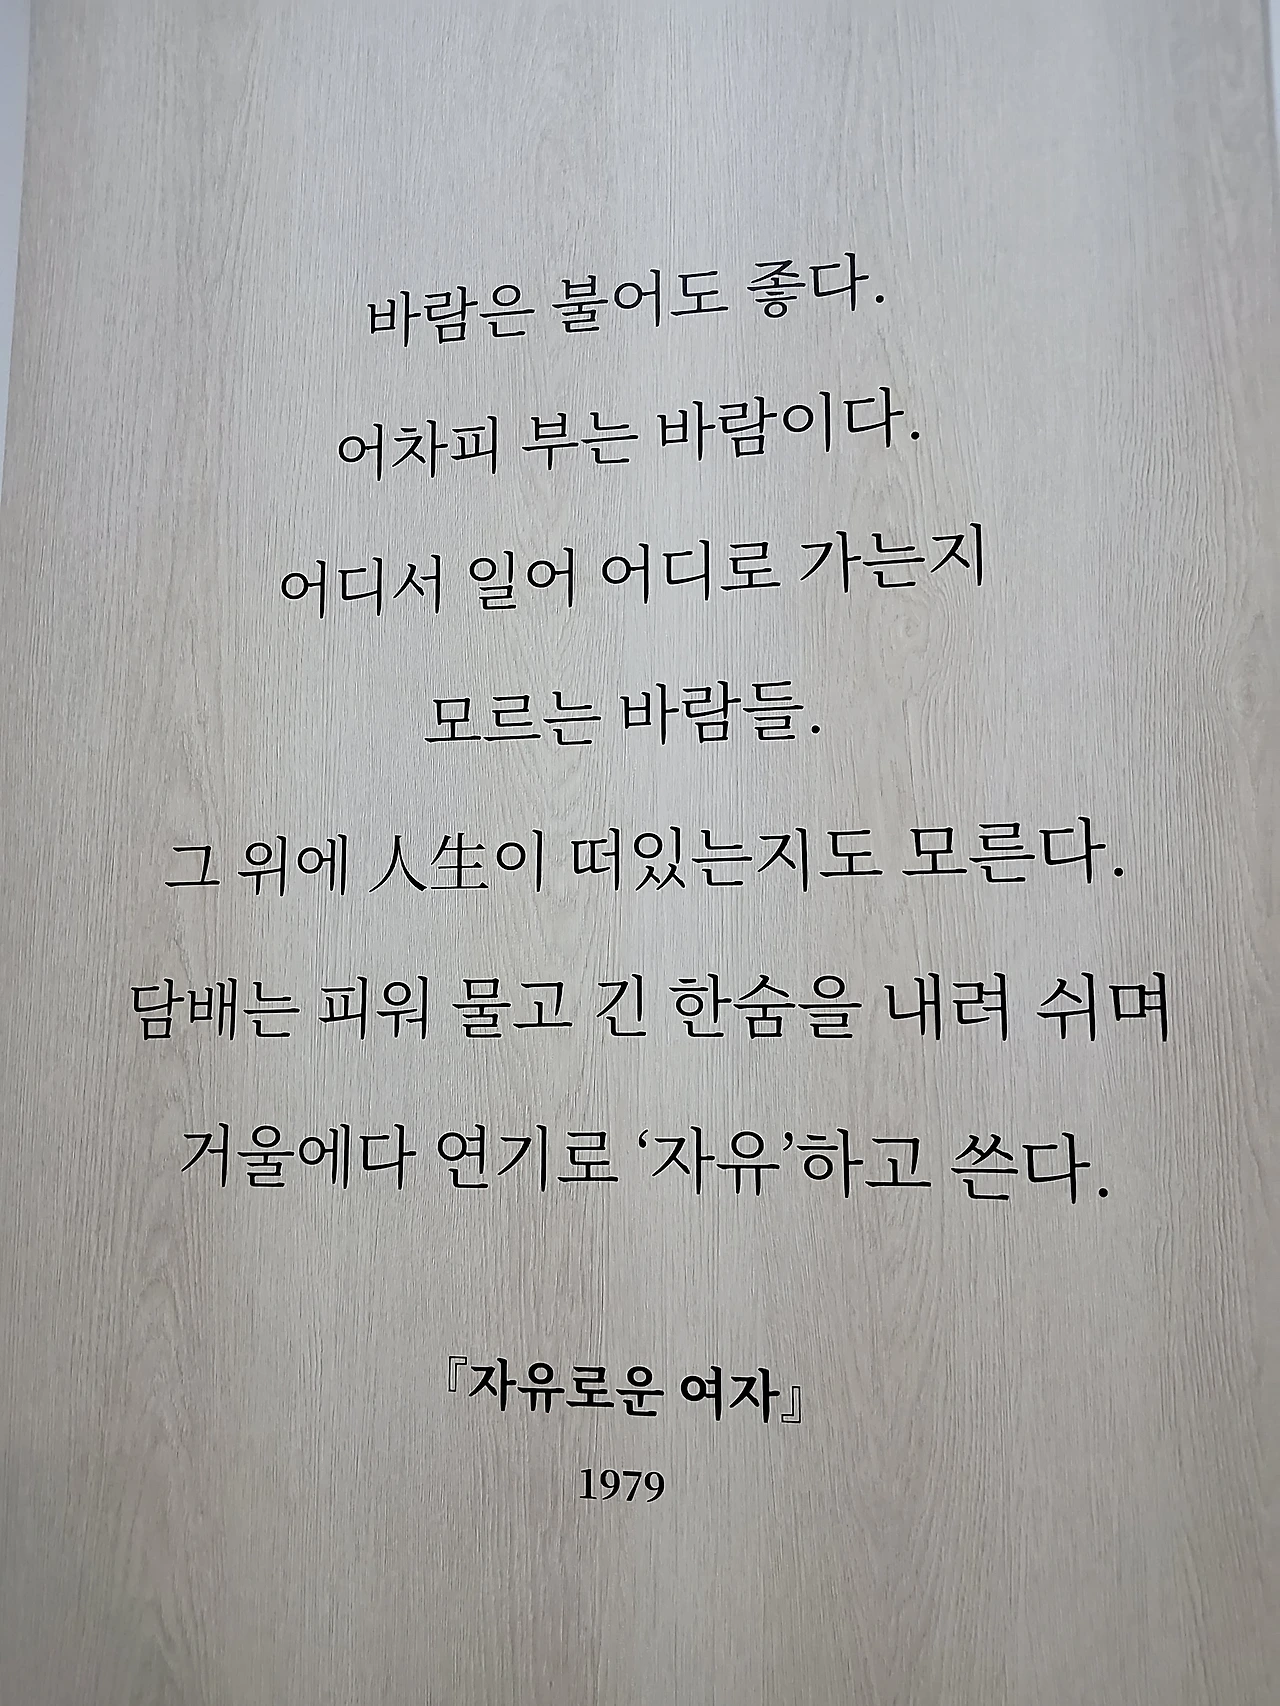 바람은 불어도 좋다.
어차피 부는 바람이다.
어디서 일어 어디로 가는지
모르는 바람들.
그 위에 人生이 떠있는지도 모른다.
담배는 피워 물고 긴 한숨을 내려 쉬며
거울에다 연기로 ‘자유’하고 쓴다.
『자유로운 여자』
1979